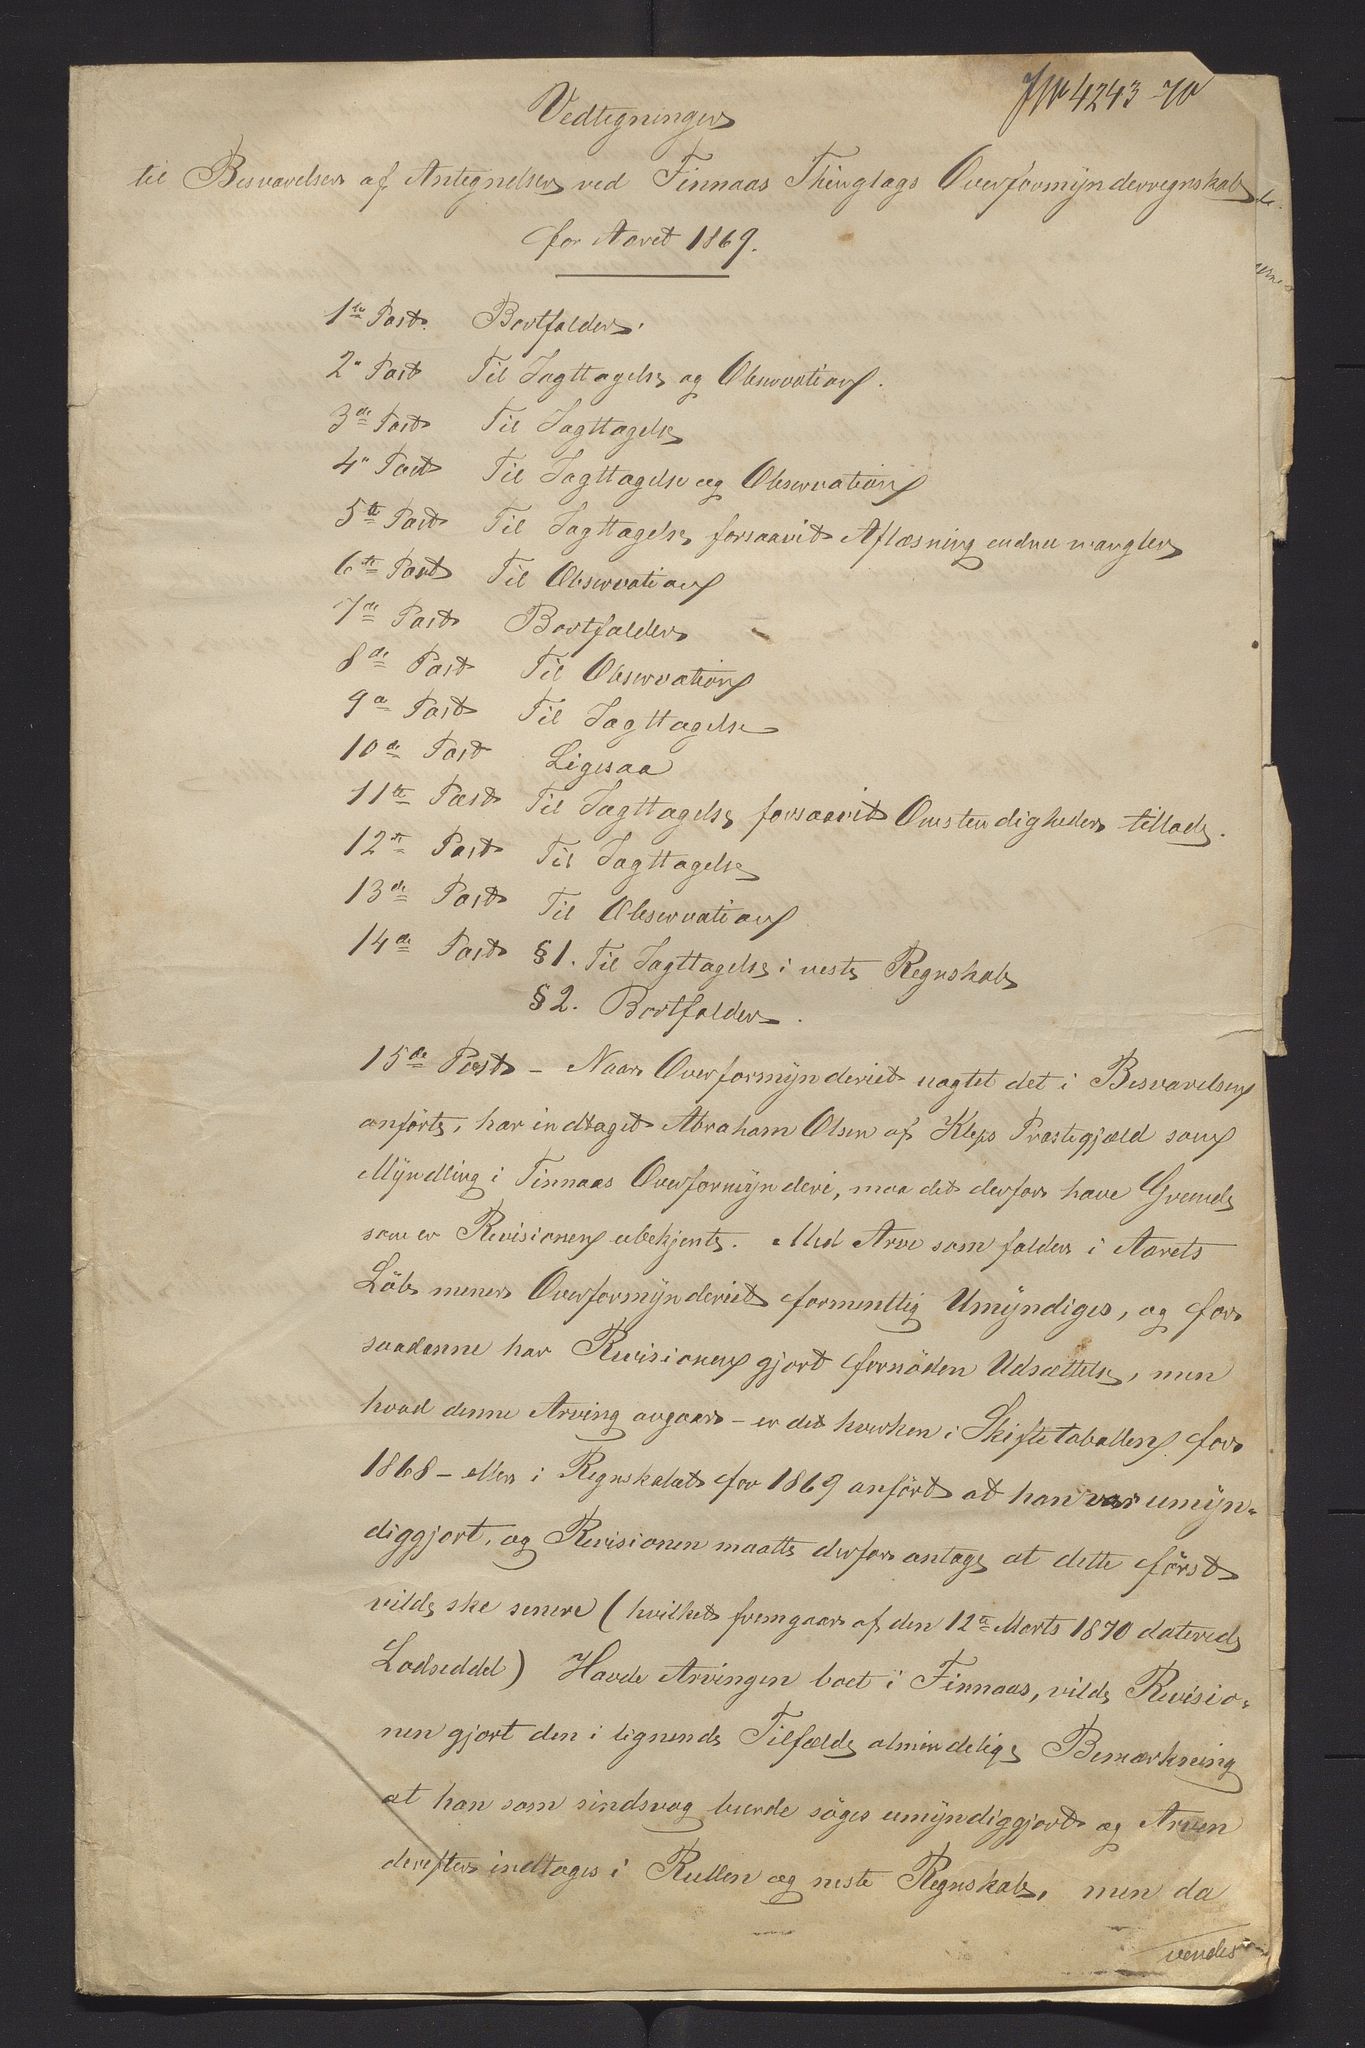 JN 4243-70
Vedtegninger
til Besvarelser af Antegnelser ved Finnaas Thinglags Overformynderregnskab
for Aaret 1869.
1ste Post. Bortfalder.
2den Post Til Iagttagelse og Observation.
3die Post Til Iagttagelse
4de Post Til Iagttagelse og Observation
5te Post Til Iagttagelse forsaavidt Aflæsning endnu mangler
6te Post Til Observation
7de Post Bortfalder
8de Post Til Observation
9de Post Til Iagttagelse
10de Post Ligesaa
11te Post Til Iagttagelse forsaavidt Omstendigheder tillade.
12te Post Til Iagttagelse
13de Post Til Observation
14de Post §1. Til Iagttagelse i neste Regnskab
§2. Bortfalder.
15de Post – Naar Overformynderiet uagtet det i Besvarelsen
anførte, har indtaget Abraham Olsen af Kleps Præstegjæld som
Myndling i Finnaas Overformynderi, maa det derfor have Grunde
som er Revisionen ubekjente. Med Arve som falder i Aarets
Løb mener Overformynderiet formentlig Umyndiges, og for
saadanne har Revisionen gjort fornøden Udsættelse, men
hvad denne Arving angaar – er det hverken i Skiftetabellen for
1868 – eller i Regnskabet for 1869 anført at han var umyn-
diggjort, og Revisionen maatte derfor antage at dette først
vilde ske senere (hvilket fremgaar af den 12te Marts 1870 daterede
Lodseddel) Havde Arvingen boet i Finnaas, vilde Revisio-
nen gjort den i lignende Tilfælde almindelige Bemærkning
at han som sindsvag burde søges umyndiggjort og Arven
derefter indtages i Rullen og neste Regnskab, men da
vendes